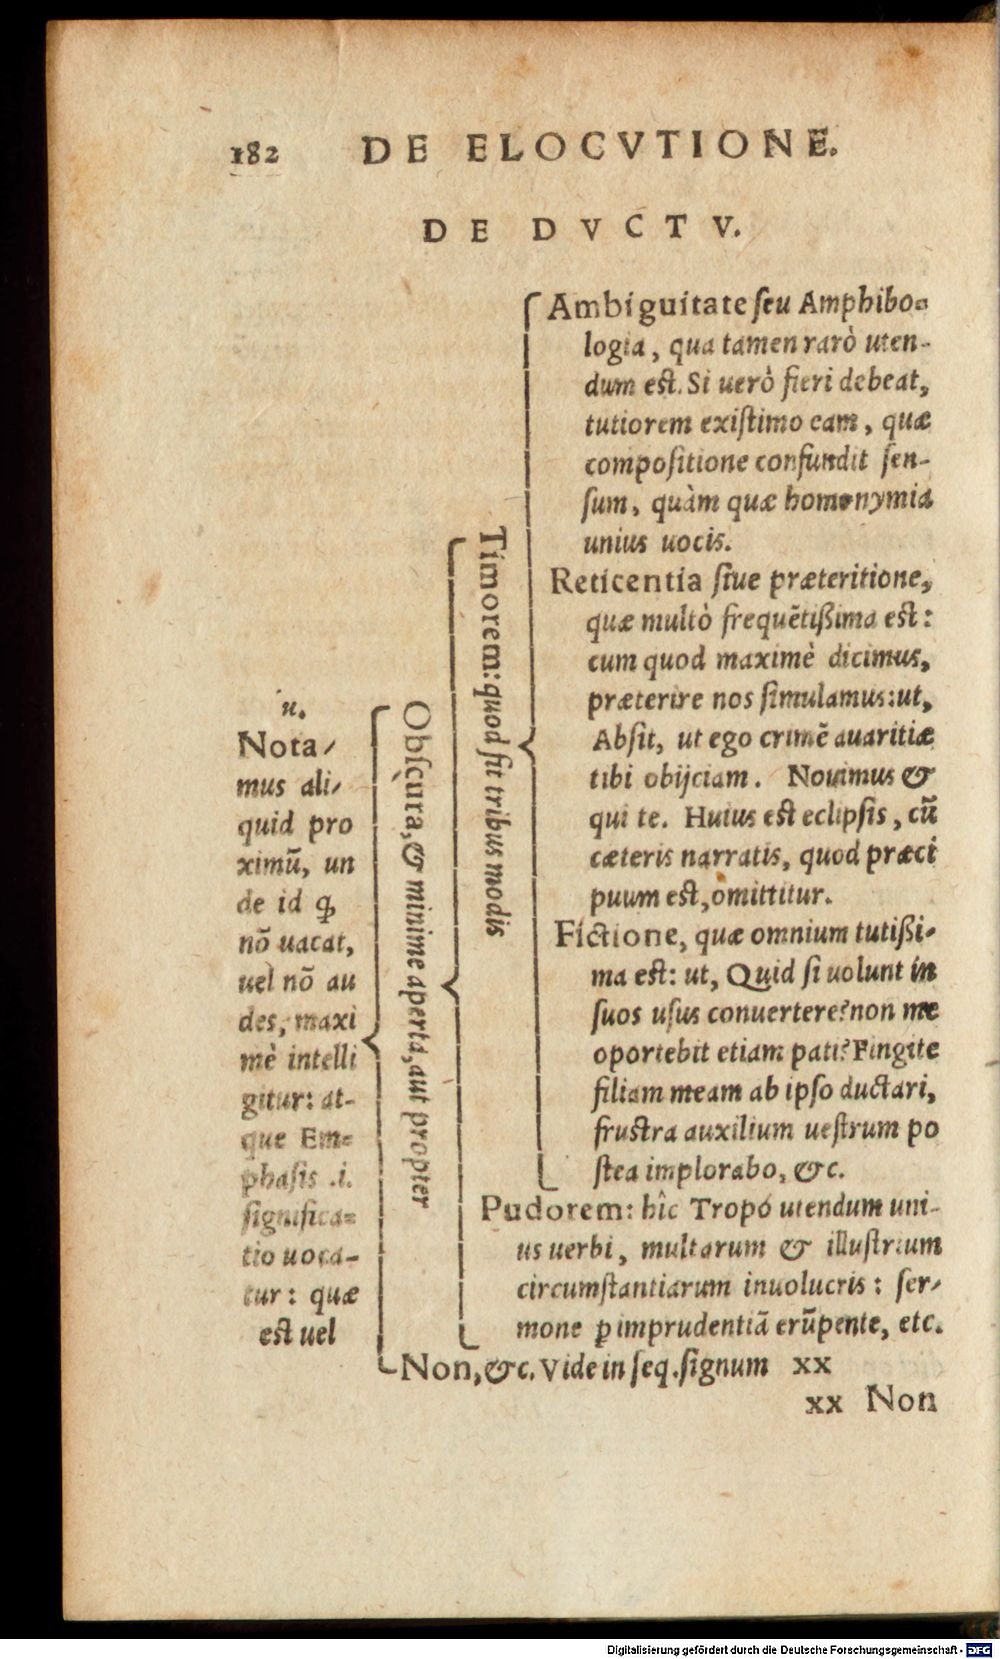 182 DE ELOCVTIONE.
DE DVCTV.
u.
Nota/
mus ali/
quid pro
ximũ, un
de id ꝙ
nõ uacat,
uel nõ au
des, maxi
mè intelli
gitur: at-
que Em=
phasis .i.
significa=
tio uoca-
tur: quæ
est uel
Obscura, & minime aperta, aut propter
Timorem: quod fit tribus modis
Ambiguitate ſeu Amphibo=
logia, qua tamen rarò uten-
dum eſt. Si uerò fieri debeat,
tutiorem exiſtimo eam, quæ
compoſitione confundit ſen-
ſum, quàm quæ homonymia
unius uocis.
Reticentia ſiue præteritione,
quæ multò frequẽtißima eſt:
cum quod maximè dicimus,
præterire nos ſimulamus: ut,
Abſit, ut ego crimẽ auaritiæ
tibi obijciam. Nouimus &
qui te. Huius eſt eclipſis, cũ
cæteris narratis, quod præci
puum eſt, omittitur.
Fictione, quæ omnium tutißi-
ma eſt: ut, Quid ſi uolunt in
ſuos uſus conuertere? non me
oportebit etiam pati? Fingite
filiam meam ab ipſo ductari,
fruſtra auxilium ueſtrum po
ſtea implorabo, &c.
Pudorem: hîc Tropo utendum uni-
us uerbi, multarum & illuſtrium
circumſtantiarum inuolucris: ſer/
mone ꝑ imprudentiã erũpente, etc.
Non, &c. Vide in ſeq. ſignum xx
xx Non
Digitalisierung gefördert durch die Deutsche Forschungsgemeinschaft - DFG